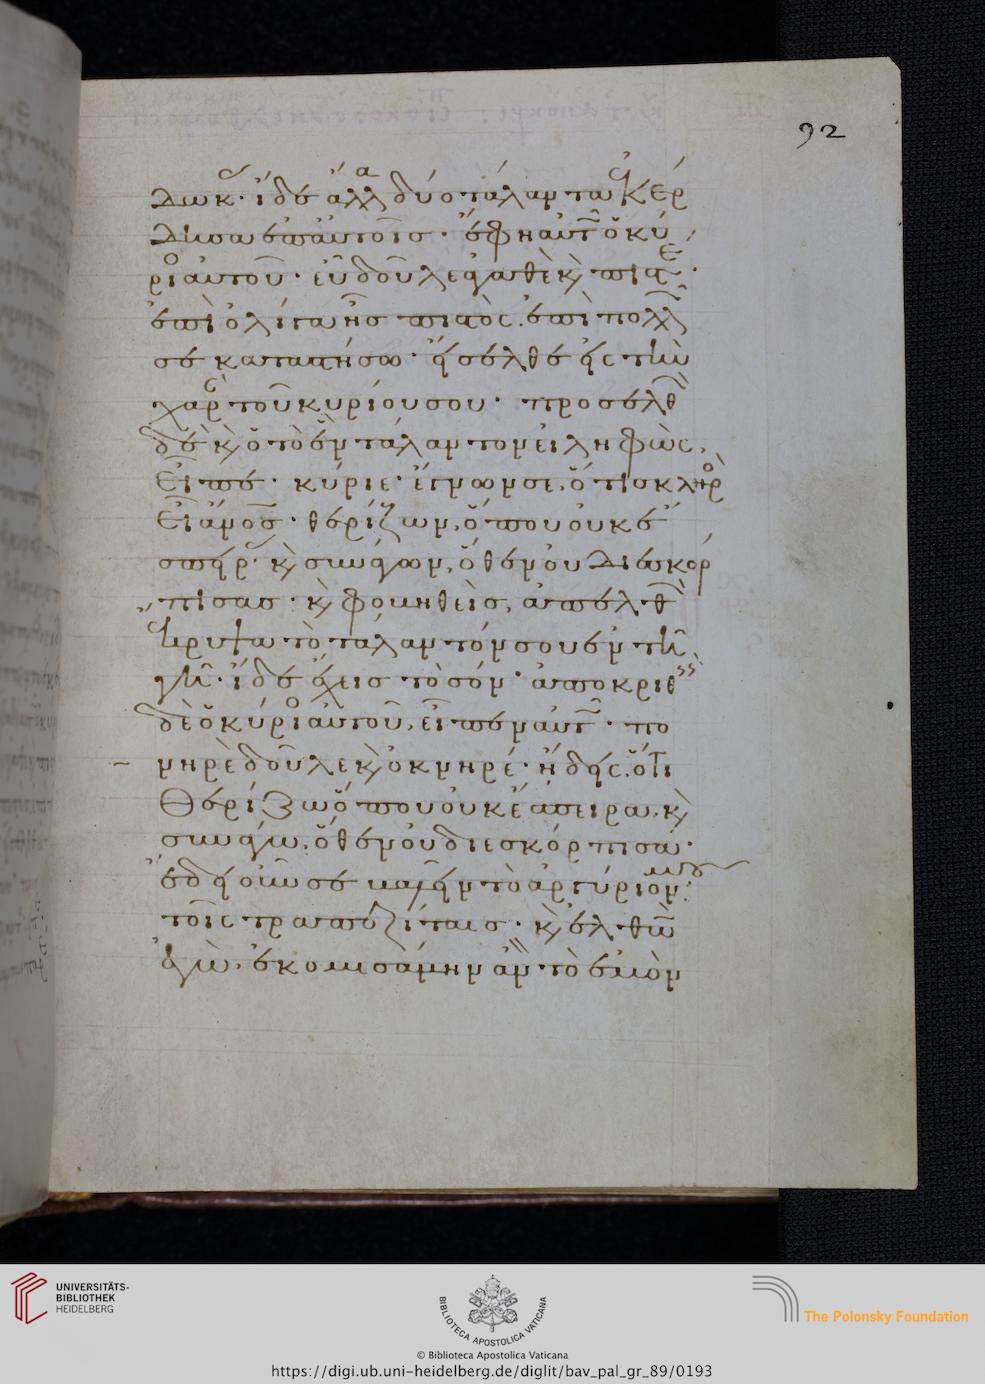 92
δωκ· ἴδε ἄλλα δύο τάλαντα ἐκέρ
δησα ἐπ αὐτοῖς· ἔφη αὐτῶ ὁ κύ
ριο αὐτοῦ· εὖ δοῦλε ἀγαθὲ κὶ πιστέ·
ἐπὶ ὀλίγα ἦς πιστὸς. ἐπὶ πολλῶν
σε καταστήσω· εἴσελθε εἰς τὴν
χαρὰν τοῦ κυρίου σου· προσελθ
δὲ κὶ ὁ τὸ ἓν τάλαντον εἰληφὼς,
εἶπε· κύριε· ἔγνων σε, ὅτι σκληρὸ
εἶ ἄνος· θερίζων, ὅπου οὐκ ἔ
σπειρας· κὶ συνάγων, ὅθεν οὐ διεσκόρ
πισας· κὶ φοβηθεὶς, ἀπελθὼν
ἔκρυψα τὸ τάλαντόν σου ἐν τῆ
γῆ· ἴδε ἔχεις τὸ σόν· ἀποκριθεὶς
δὲ ὁ κύριο αὐτοῦ, εἶπεν αὐτῶ· πο
νηρὲ δοῦλε κὶ ὀκνηρέ· ἤδεις. ὅτι
θερίζω ὅπου οὐκ ἔσπειρα, κὶ
συνάγω, ὅθεν οὐ διεσκόρπισα·
ἔδει οὖν σε βαλεῖν τὸ ἀργύριον μου
τοῖς τραπεζίταις· κὶ ἐλθὼν
ἐγὼ, ἐκομισάμην ἂν τὸ ἐμὸν
UNIVERSITÄTS-
BIBLIOTHEK
HEIDELBERG
BIBLIOTECA APOSTOLICA VATICANA
The Polonsky Foundation
© Biblioteca Apostolica Vaticana
https://digi.ub.uni-heidelberg.de/diglit/bav_pal_gr_89/0193